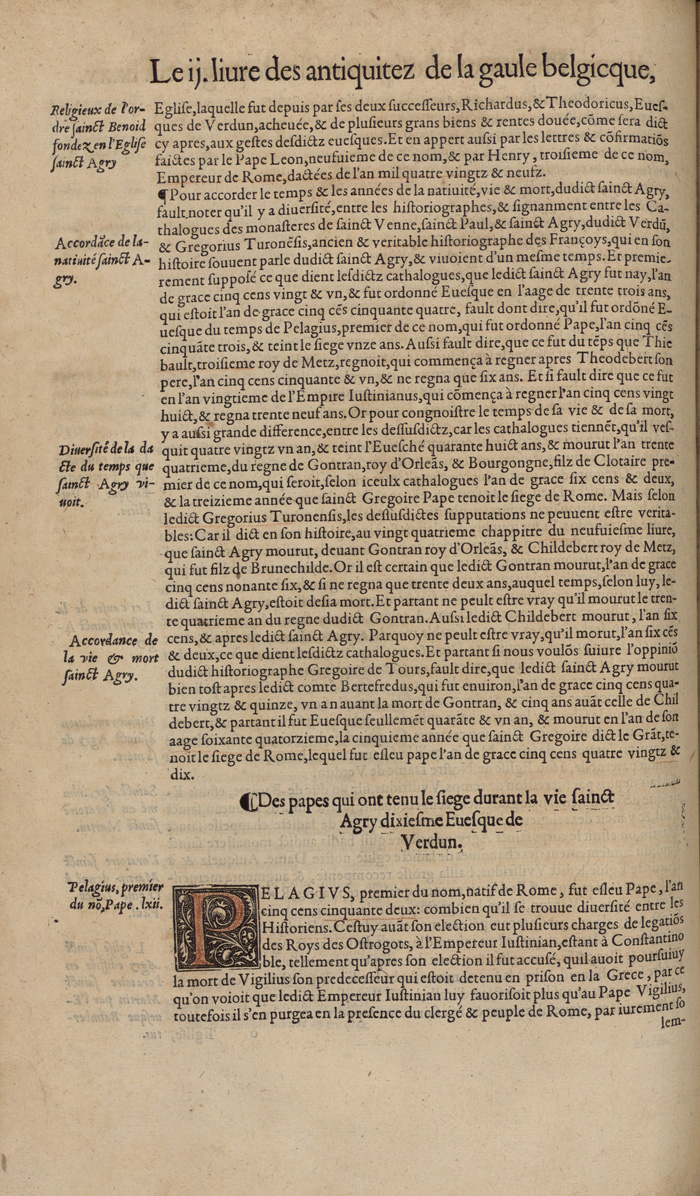 Le ij. liure des antiquitez de la gaule belgicque,
Religieux de l'or-
dre sainct Benoid
fondez en l'Eglise
sainct Agry
Eglise, laquelle fut depuis par ses deux successeurs, Richardus, & Theodoricus, Eues-
ques de Verdun, acheuée, & de plusieurs grans biens & rentes douée, cōme sera dict
cy apres, aux gestes desdictz euesques. Et en appert aussi par les lettres & cōfirmatiōs
faictes par le Pape Leon, neufuieme de ce nom, & par Henry, troisieme de ce nom,
Empereur de Rome, dactées de l'an mil quatre vingtz & neufz.
¶Pour accorder le temps & les années de la natiuité, vie & mort, dudict sainct Agry,
fault noter qu'il y a diuersité, entre les historiographes, & signanment entre les Ca-
thalogues des monasteres de sainct Venne, sainct Paul, & sainct Agry, dudict Verdū,
& Gregorius Turonēsis, ancien & veritable historiographe des Françoys, qui en son
histoire souuent parle dudict sainct Agry, & viuoient d'un mesme temps. Et premie-
rement supposé ce que dient lesdictz cathalogues, que ledict sainct Agry fut nay, l'an
de grace cinq cens vingt & vn, & fut ordonné Euesque en l'aage de trente trois ans,
qui estoit l'an de grace cinq cēs cinquante quatre, fault dont dire, qu'il fut ordōné E-
uesque du temps de Pelagius, premier de ce nom, qui fut ordonné Pape, l'an cinq cēs
cinquāte trois, & teint le siege vnze ans. Aussi fault dire, que ce fut du tēps que Thie
bault, troisieme roy de Metz, regnoit, qui commença à regner apres Theodebert son
pere, l'an cinq cens cinquante & vn, & ne regna que six ans. Et si fault dire que ce fut
en l'an vingtieme de l'Empire Iustinianus, qui cōmença à regner l'an cinq cens vingt
huict, & regna trente neuf ans. Or pour congnoistre le temps de sa vie & de sa mort,
y a aussi grande difference, entre les dessusdictz, car les cathalogues tiennēt, qu'il ves-
quit quatre vingtz vn an, & teint l'Euesché quarante huict ans, & mourut l'an trente
quatrieme, du regne de Gontran, roy d'Orleās, & Bourgongne, filz de Clotaire pre-
mier de ce nom, qui seroit, selon iceulx cathalogues l'an de grace six cens & deux,
& la treizieme année que sainct Gregoire Pape tenoit le siege de Rome. Mais selon
ledict Gregorius Turonensis, les dessusdictes supputations ne peuuent estre verita-
bles: Car il dict en son histoire, au vingt quatrieme chappitre du neufuiesme liure,
que sainct Agry mourut, deuant Gontran roy d'Orleās, & Childebert roy de Metz,
qui fut filz de Brunechilde. Or il est certain que ledict Gontran mourut, l'an de grace
cinq cens nonante six, & si ne regna que trente deux ans, auquel temps, selon luy, le-
dict sainct Agry, estoit desia mort. Et partant ne peult estre vray qu'il mourut le tren-
te quatrieme an du regne dudict Gontran. Aussi ledict Childebert mourut, l'an six
cens, & apres ledict sainct Agry. Parquoy ne peult estre vray, qu'il morut, l'an six cēs
& deux, ce que dient lesdictz cathalogues. Et partant si nous voulōs suiure l'oppiniō
dudict historiographe Gregoire de Tours, fault dire, que ledict sainct Agry mourut
bien tost apres ledict comte Bertefredus, qui fut enuiron, l'an de grace cinq cens qua-
tre vingtz & quinze, vn an auant la mort de Gontran, & cinq ans auāt celle de Chil
debert, & partant il fut Euesque seullemēt quarāte & vn an, & mourut en l'an de son
aage soixante quatorzieme, la cinquieme année que sainct Gregoire dict le Grāt, te-
noit le siege de Rome, lequel fut esleu pape l'an de grace cinq cens quatre vingtz &
dix.
Accordāce de la-
natiuité sainct A-
gry.
Diuersité de la da
cte du temps que
sainct Agry vi-
uoit.
Accordance de
la vie & mort
sainct Agry.
¶Des papes qui ont tenu le siege durant la vie sainct
Agry dixiesme Euesque de
Verdun.
Pelagius, premier
du nō, Pape. lxii.
PELAGIVS, premier du nom, natif de Rome, fut esleu Pape, l'an
cinq cens cinquante deux: combien qu'il se trouue diuersité entre les
Historiens. Cestuy auāt son election eut plusieurs charges de legatiōs
des Roys des Ostrogots, à l'Empereur Iustinian, estant à Constantino
ble, tellement qu'apres son election il fut accusé, quil auoit poursuiuy
la mort de Vigilius son predecesseur qui estoit detenu en prison en la Grece, par ce
qu'on voioit que ledict Empereur Iustinian luy fauorisoit plus qu'au Pape Vigilius,
toutefois il s'en purgea en la presence du clergé & peuple de Rome, par iurement so
lem-